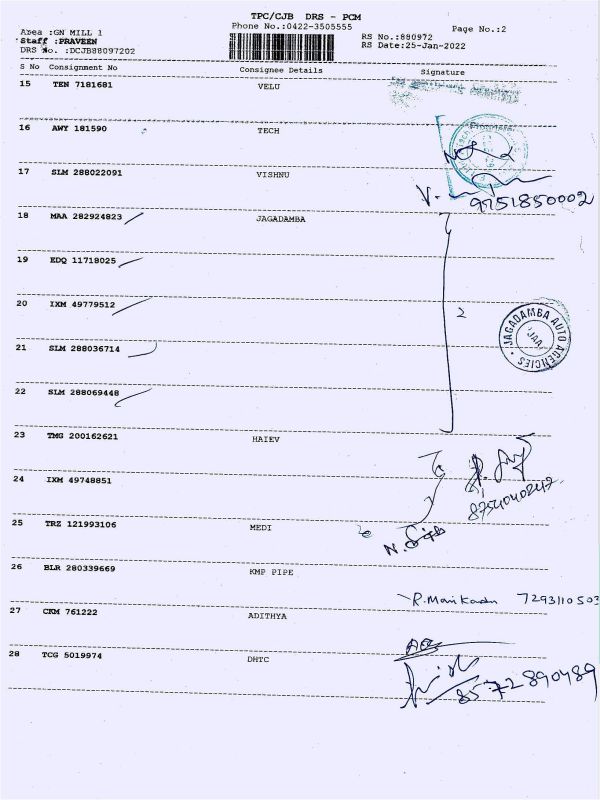 TPC/CJB DRS - PCM
Phone No.:0422-3505555 Page No.:2
Area :GN MILL 1 RS No.:880972
Staff :PRAVEEN RS Date:25-Jan-2022
DRS No. :DCJB88097202
S No Consignment No Consignee Details Signature
15 TEN 7181681 VELU
16 AWY 181590 TECH
17 SLM 288022091 VISHNU
V. 9751850002
18 MAA 282924823 JAGADAMBA
19 EDQ 11718025
20 IXM 49779512 2
JAGADAMBA AUTO AGENCIES
JAA
21 SLM 288036714
22 SLM 288069448
23 TMG 200162621 HAIEV
24 IXM 49748851
8754040247
25 TRZ 121993106 MEDI
N.
26 BLR 280339669 KMP PIPE
R. Manikandn 7293110503
27 CKM 761222 ADITHYA
28 TCG 5019974 DHTC
8572890489